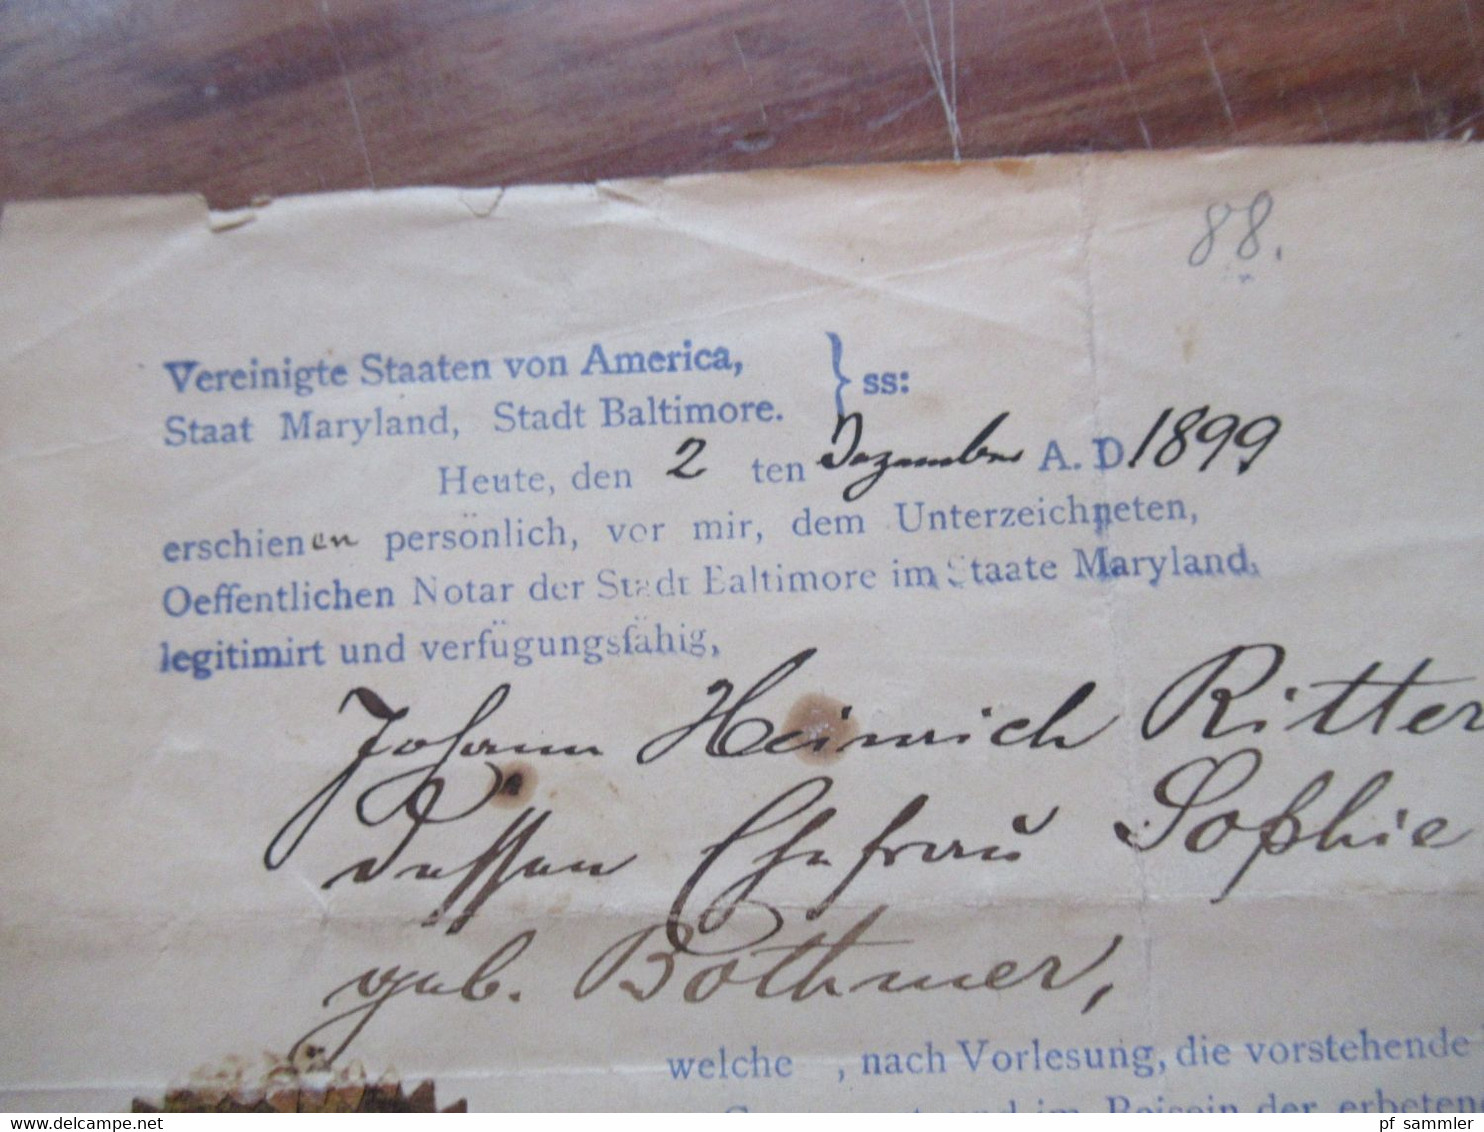 88.
Vereinigte Staaten von America, } ss:
Staat Maryland, Stadt Baltimore.
Heute, den 2 ten Dezember A. D. 1899
erschienen persönlich, vor mir, dem Unterzeichneten,
Oeffentlichen Notar der Stadt Baltimore im Staate Maryland,
legitimirt und verfügungsfähig,
Johann Heinrich Ritter
dessen Ehefrau Sophie
geb. Bothmer,
welche , nach Vorlesung, die vorstehende
und im Beisein der erbetene
www.delcampe.net
pf_sammler